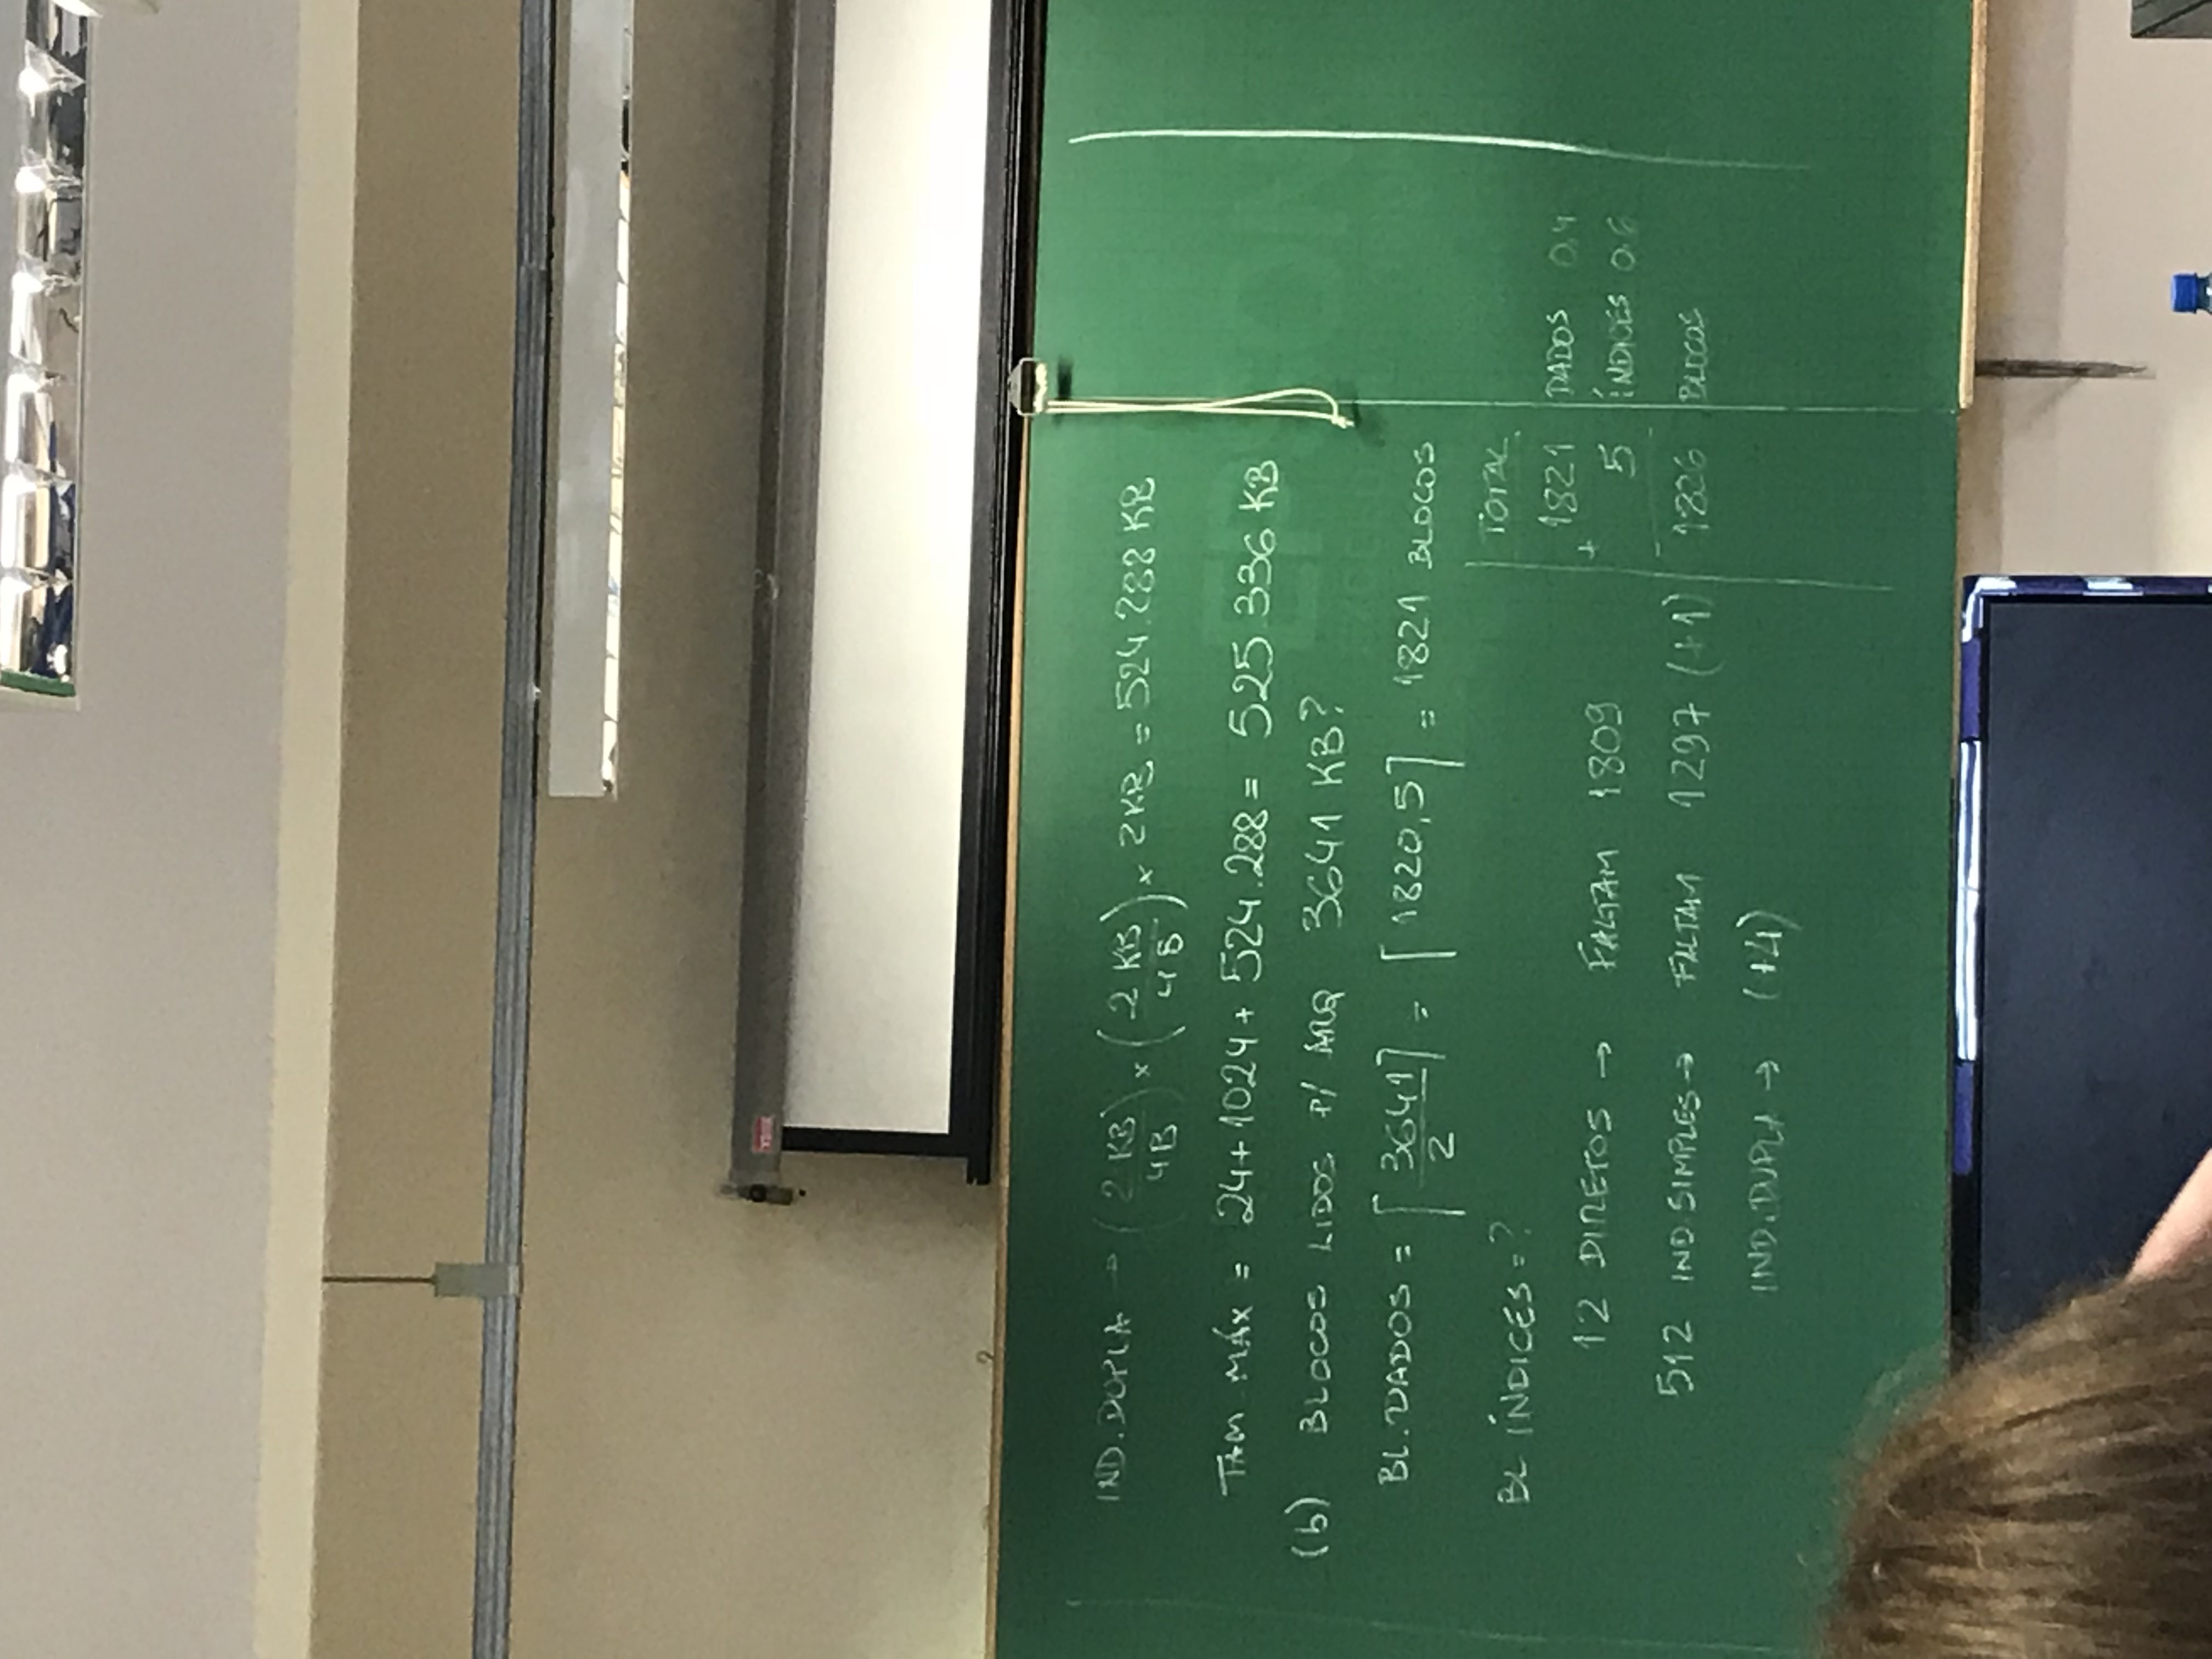 IND.DUPLA → (2 KB / 4B) × (2 KB / 4B) × 2KB = 524.288 KB
TAM MÁX = 24 + 1024 + 524.288 = 525.336 KB
(b) BLOCOS LIDOS P/ ARQ 3641 KB?
BL.DADOS = ⌈3641 / 2⌉ = ⌈1820,5⌉ = 1821 BLOCOS
BL ÍNDICES = ?
12 DIRETOS → FALTAM 1809
512 IND.SIMPLES → FALTAM 1297 (+1)
IND.DUPLA → (+4)
TOTAL
1821 DADOS 0.4
+ 5 ÍNDICES 0.6
1826 BLOCOS
EPSON